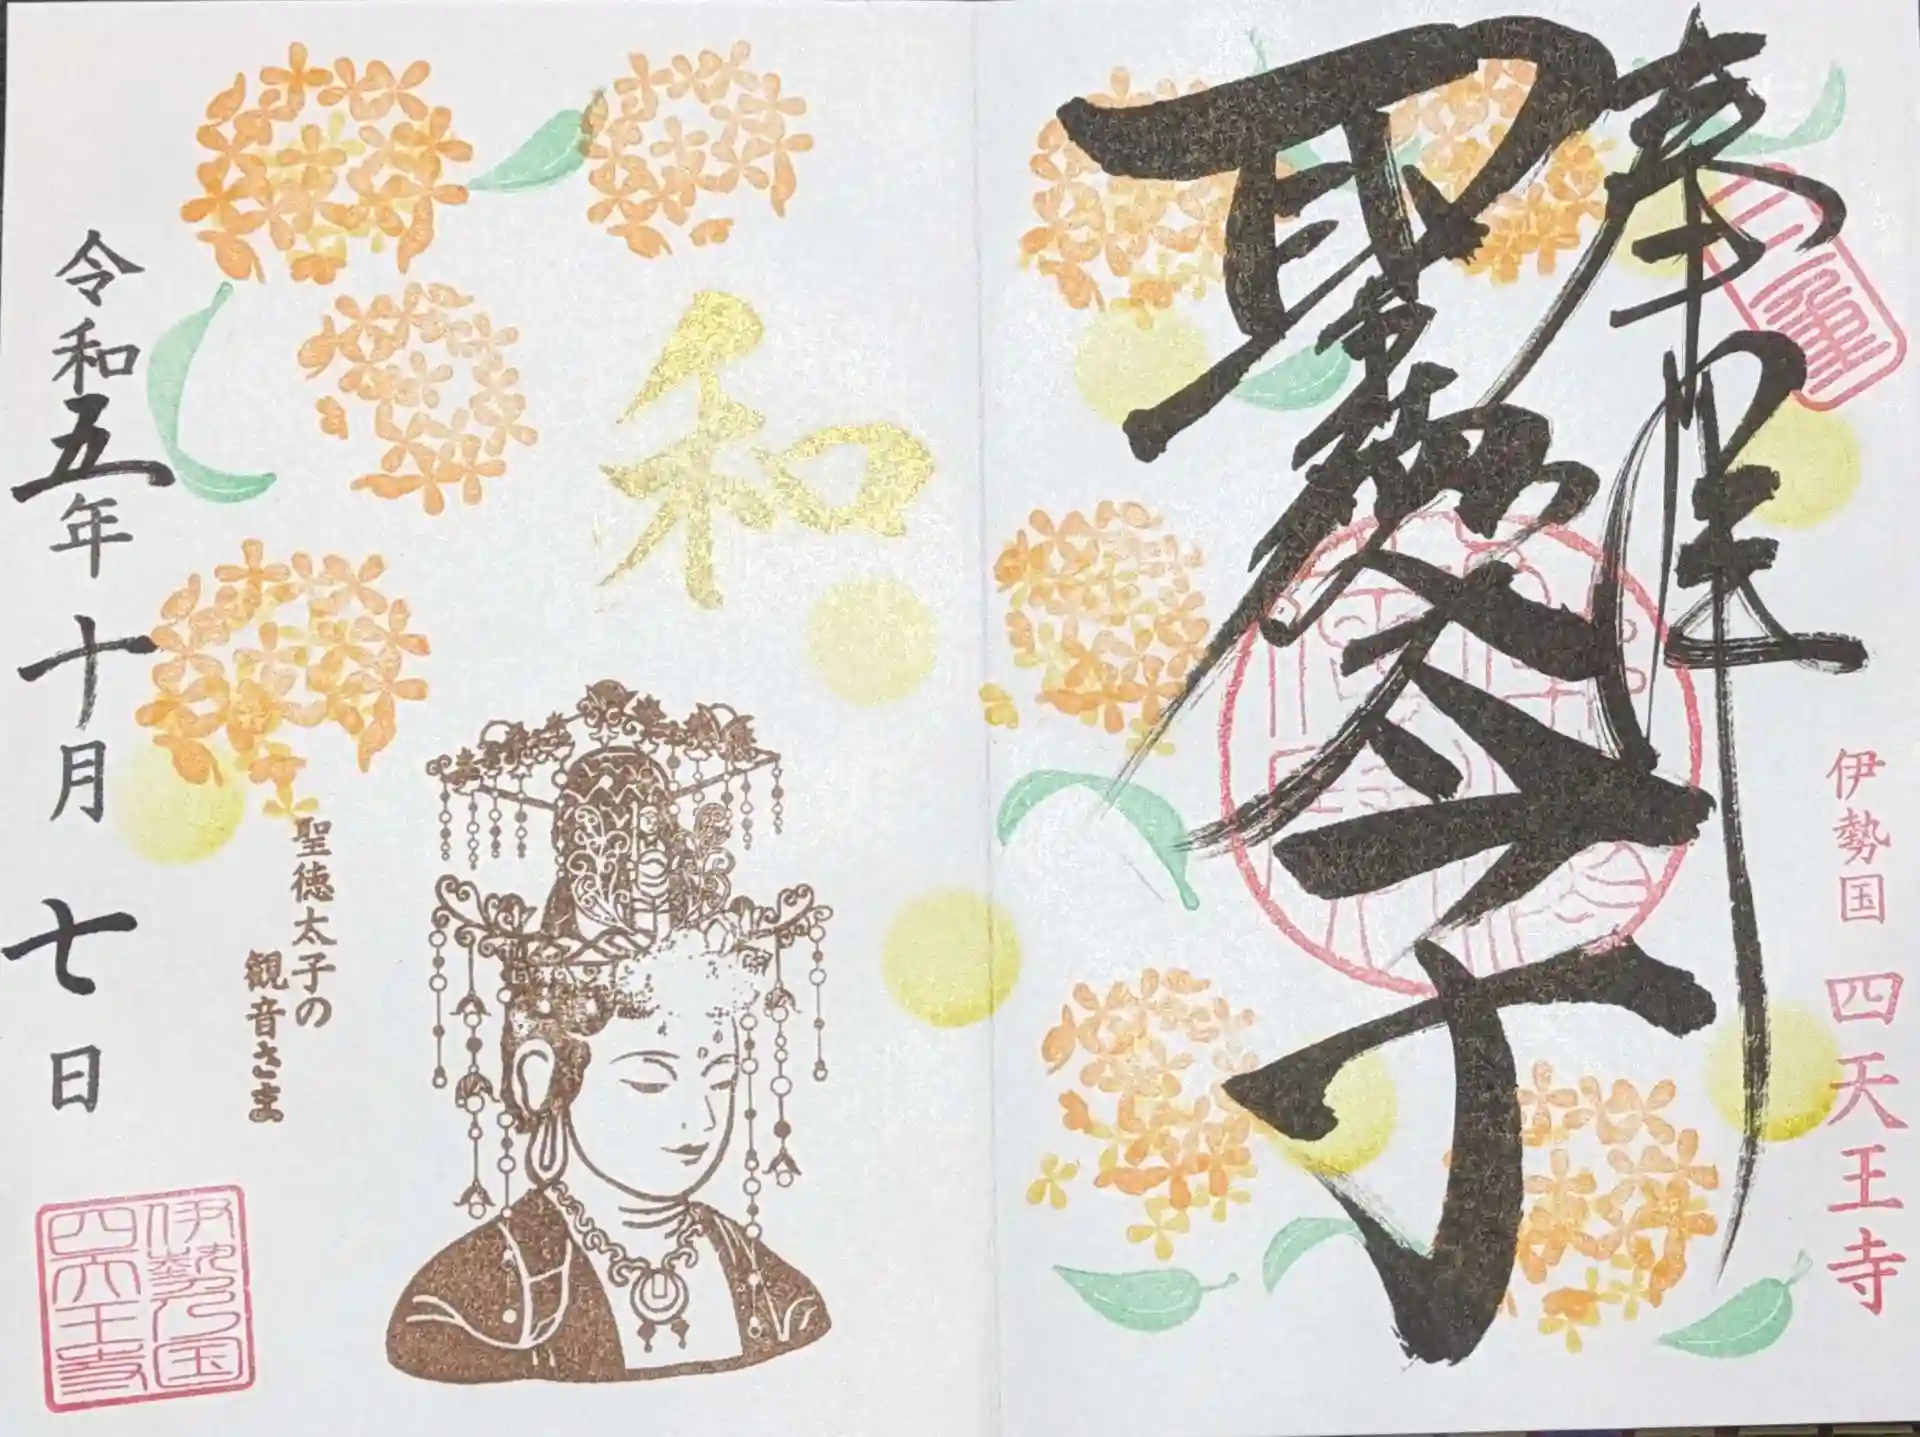 奉拝
聖徳太子
伊勢国 四天王寺
和
聖徳太子の
観音さま
令和五年十月七日
伊勢国
四天王寺